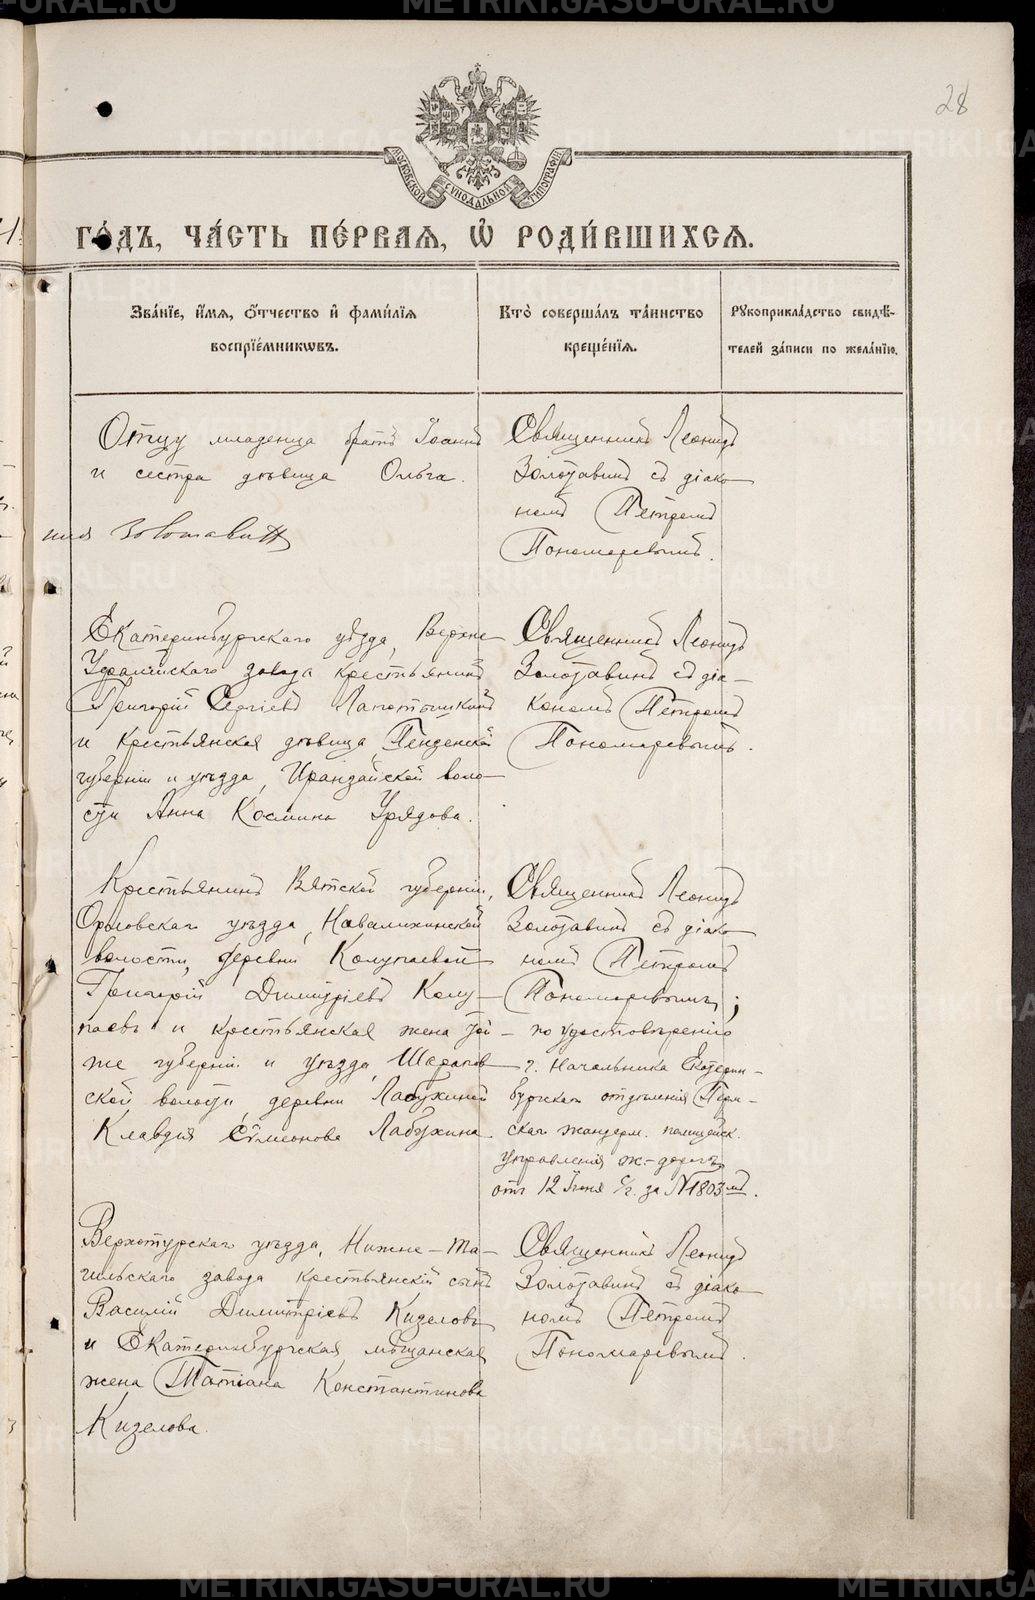 28
МОСКОВСКОЙ СѴНОДАЛЬНОЙ ТИПОГРАФІИ
ГО́ДЪ, ЧА́СТЬ ПЕ́РВАЯ, Ѡ҆ РОДИ́ВШИХСЯ.
Зва́нїе, и҆́мя, ѻ҆́тчество и҆ фами́лїя
воспрїе́мникѡвъ.
Кто̀ соверша́лъ та́инство
креще́нїя.
Рꙋкоприкла́дство свидѣ́-
телей за́писи по жела́нїю.
Отцу младенца братъ Іоаннъ
и сестра дѣвица Ольга.
Золотавин
Священникъ Леонидъ
Золотавинъ съ діако-
номъ Петромъ
Пономаревымъ.
Екатеринбургскаго уѣзда, Верхне-
Уфалейскаго завода крестьянинъ
Григорій Сергіевъ
и крестьянская дѣвица, Пензенской
губерніи и уѣзда, воло-
сти Анна Космина Урядова.
Священникъ Леонидъ
Золотавинъ съ діа-
кономъ Петромъ
Пономаревымъ.
Крестьянинъ Вятской губерніи,
Орловскаго уѣзда,
волости, деревни Колупаевой
Григорій Димитріевъ Колу-
паевъ и крестьянская жена той-
же губерніи и уѣзда, Шарапов-
ской волости, деревни Лабухиной
Клавдія Сѵмеонова Лабухина
Священникъ Леонидъ
Золотавинъ съ діако-
номъ Петромъ
Пономаревымъ;
по удостовѣренію
г. Начальника Екатерин-
бургскаго отдѣленія Перм-
скаго жандерм. полицейск.
управленія ж.-дорогъ
отъ 12 Іюня с/г. за №1803мъ.
Верхотурскаго уѣзда, Нижне-Та-
гильскаго завода крестьянскій сынъ
Василій Димитріевъ Кизеловъ
и Екатеринбургская мѣщанская
жена Татіана Константинова
Кизелова.
Священникъ Леонидъ
Золотавинъ съ діако-
номъ Петромъ
Пономаревымъ.
METRIKI.GASO-URAL.RU